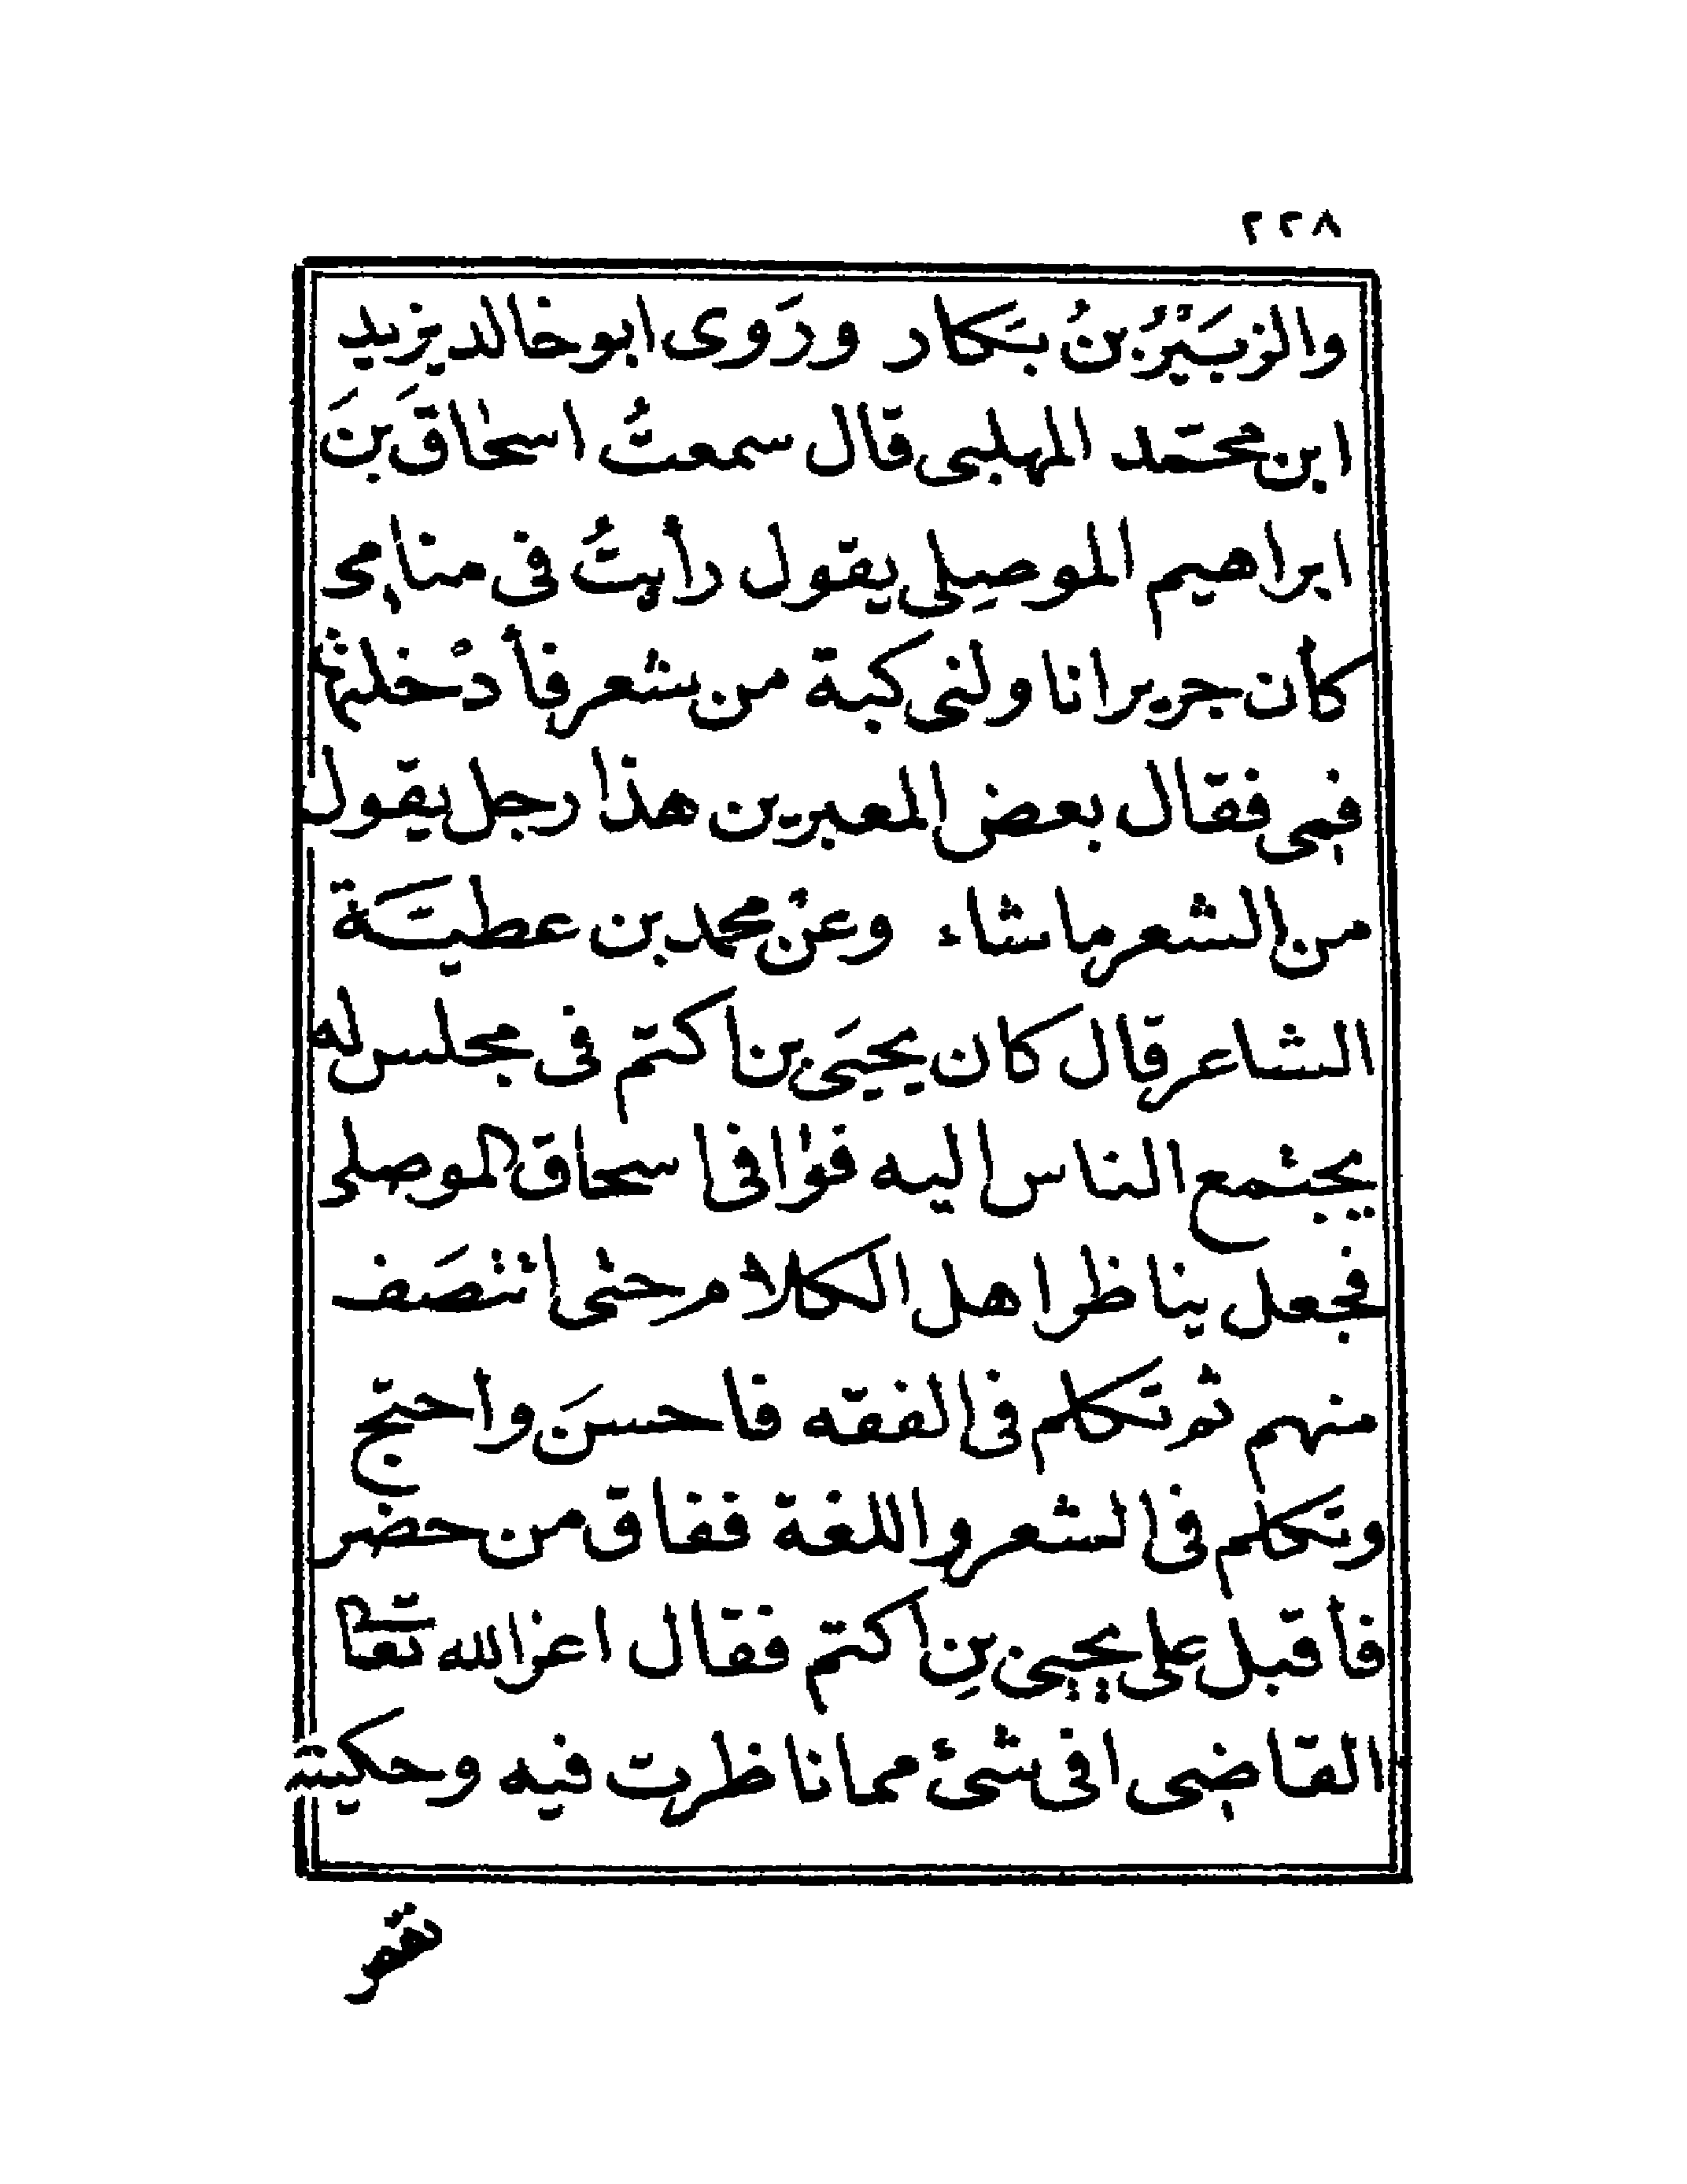 ٢٢٨
والزبَيْرُ بنُ بَكار ورَوى ابو خالد يزيد
ابن محمّد المهلبى قال سمعتُ اسحٰاقَ بنَ
ابراهيم الموصِلى يقول رأيتُ فى منامى
كأن جريرا ناولنى كبة من شعر فأدْخلتها
فمى فقال بعض المعبرين هذا رجل يقول
من الشعر ما شاء وعنْ محمد بن عطيَّة
الشاعر قال كان يحيَى بن اكتم فى مجلس له
يجتمع الناس اليه فوٰافى اسحاق الموصلى
فجعل يناظر اهل الكلام حتى انتصَف
منهم ثم تكلم فى الفقه فاحسنَ واحتج
وتكلم فى الشعر واللغة ففاق من حضر
فأقبل على يحيى بنِ اكتم فقال اعز الله تعالى
القاضى افى شئ مما ناظرت فيه وحكيته